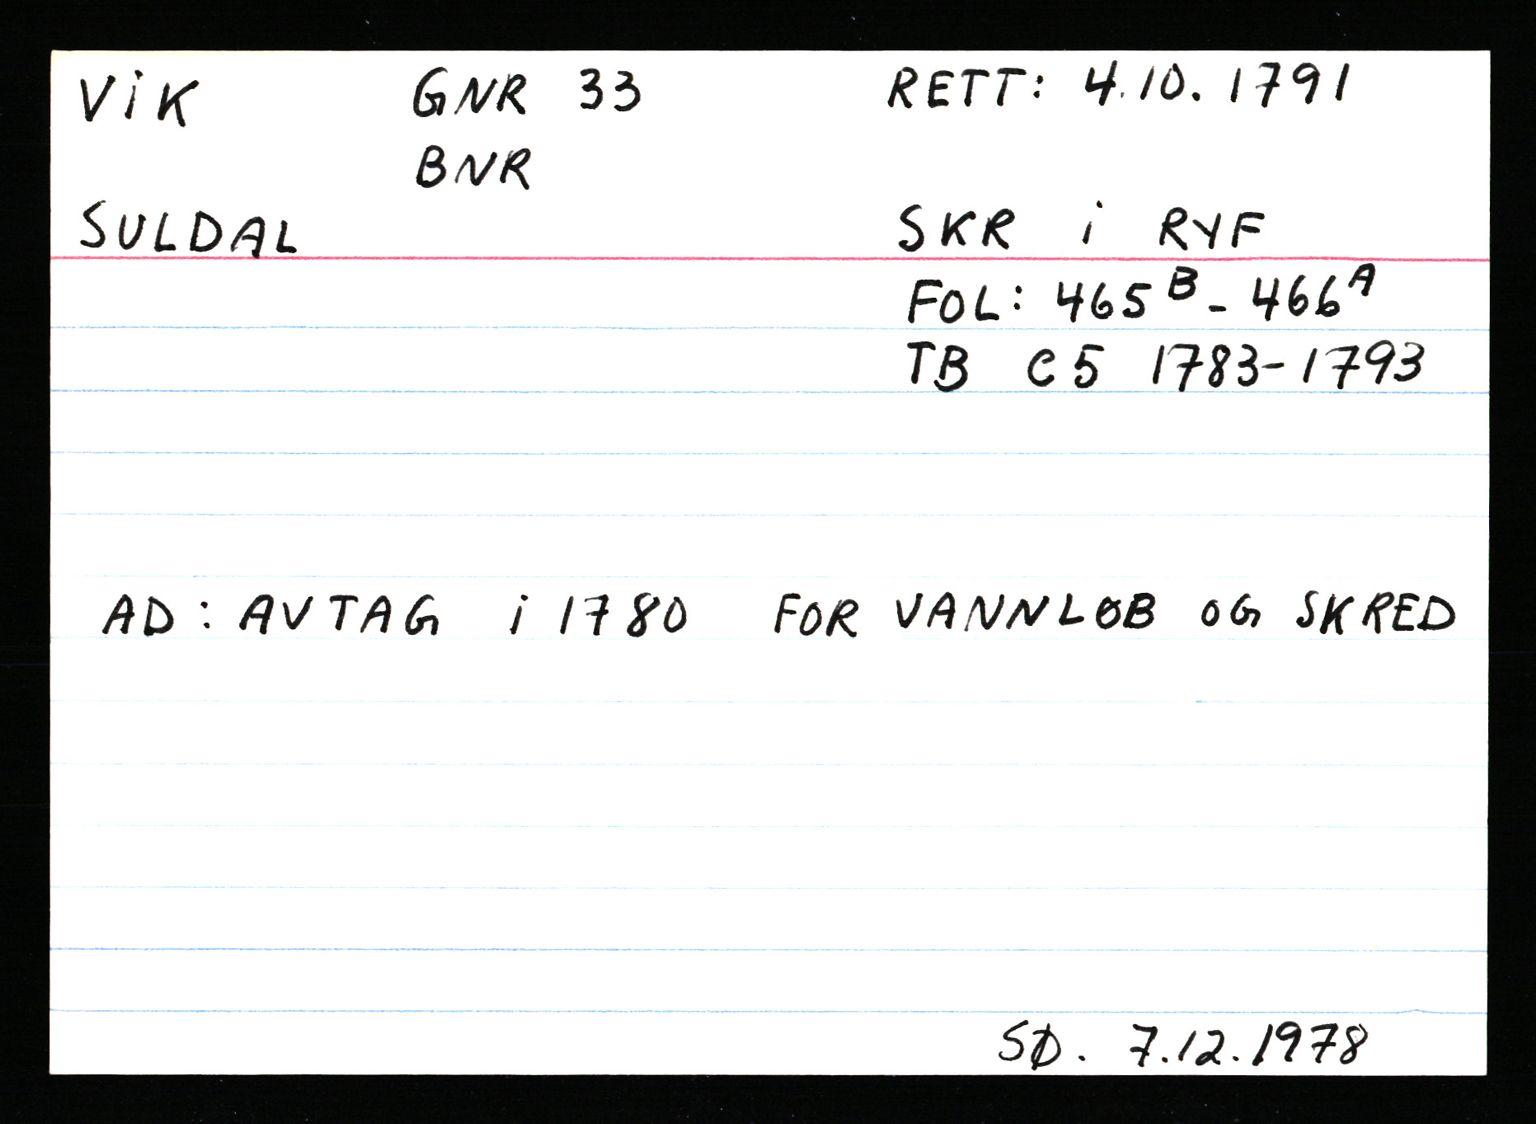 ViK GNR 33 RETT: 4.10.1791
BNR
SULDAL SKR i RYF
FOL: 465ᴮ - 466ᴬ
TB C5 1783-1793
AD: AVTAG i 1780 FOR VANNLØB OG SKRED
SD. 7.12.1978